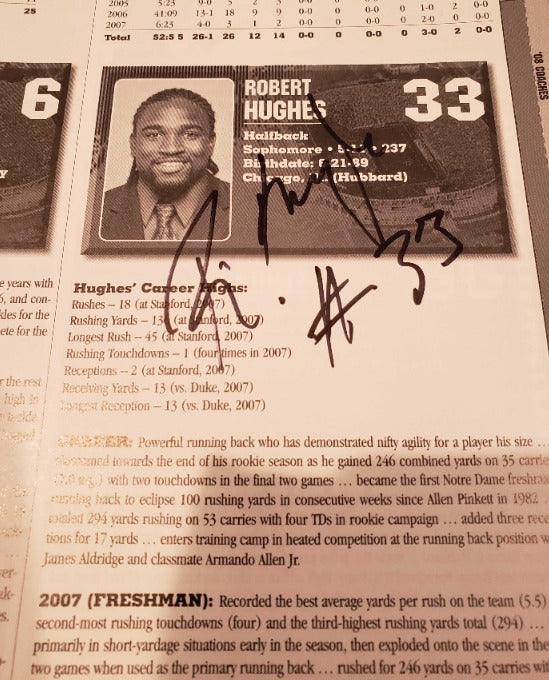 25
2006 41:09 13-1 18 9 9 0-0 0 0-0 0 1-0 2 0-0
2007 6:23 4-0 3 1 2 0-0 0 0-0 0 2-0 0-0
Total 52:55 26-1 26 12 14 0-0 0 0-0 0 3-0 2 0-0
'08 COACHES
6
ROBERT
HUGHES
33
Halfback
Sophomore • 237
Birthdate: 6-21-89
Chicago, (Hubbard)
#33
Hughes' Career Highs:
Rushes – 18 (at Stanford, 2007)
Rushing Yards – (at Stanford, 2007)
Longest Rush – 45 (at Stanford, 2007)
Rushing Touchdowns – 1 (four times in 2007)
Receptions – 2 (at Stanford, 2007)
Receiving Yards – 13 (vs. Duke, 2007)
Longest Reception – 13 (vs. Duke, 2007)
e years with
6, and con-
kles for the
ete for the
r the rest
high in
CAREER: Powerful running back who has demonstrated nifty agility for a player his size ...
towards the end of his rookie season as he gained 246 combined yards on 35 carrie
with two touchdowns in the final two games ... became the first Notre Dame freshma
running back to eclipse 100 rushing yards in consecutive weeks since Allen Pinkett in 1982 ...
totaled 294 yards rushing on 53 carries with four TDs in rookie campaign ... added three rece
tions for 17 yards ... enters training camp in heated competition at the running back position w
James Aldridge and classmate Armando Allen Jr.
2007 (FRESHMAN): Recorded the best average yards per rush on the team (5.5)
second-most rushing touchdowns (four) and the third-highest rushing yards total (294) ...
primarily in short-yardage situations early in the season, then exploded onto the scene in the
two games when used as the primary running back ... rushed for 246 yards on 35 carries wit